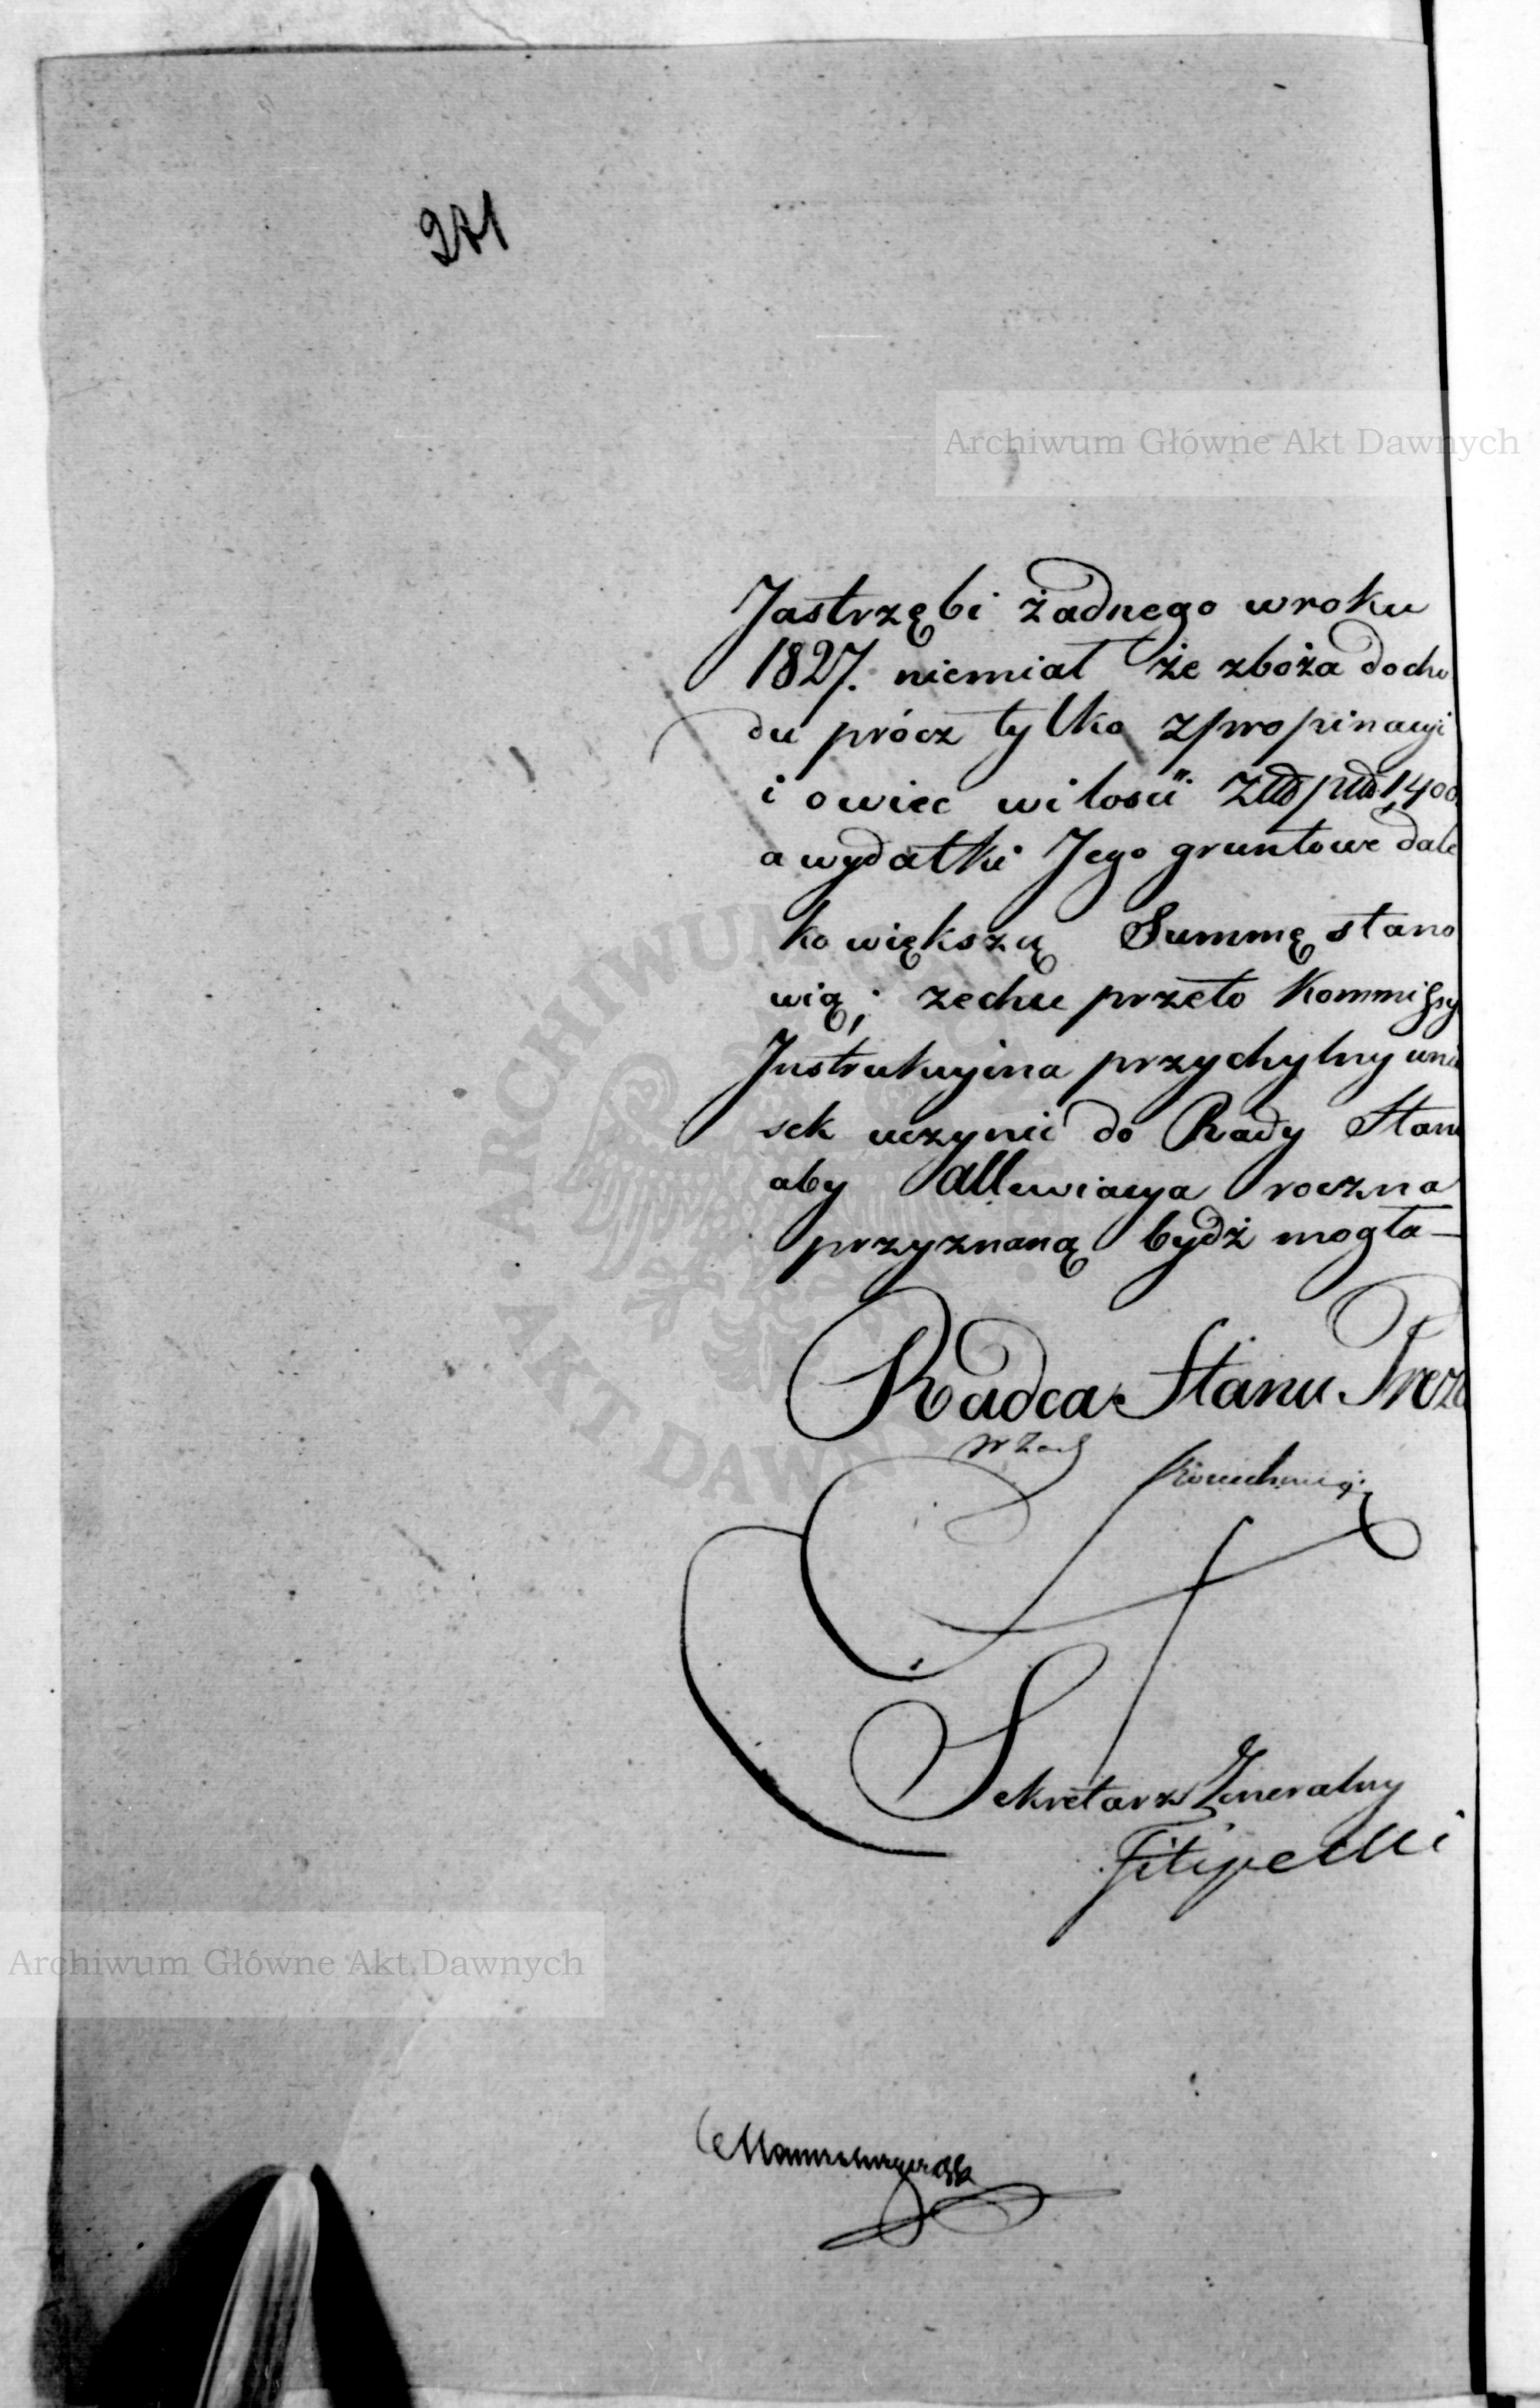 271
Archiwum Główne Akt Dawnych
Jastrzębi żadnego w roku
1827. niemiał że zboża docho
du prócz tylko z propinacyi
i owiec w ilości 1400
a wydatki Jego gruntowe dale
ko większą Summę stano
wią; zechce przeto Kommissy
Instrukcyina przychylny wnio
sek uczynić do Rady Stanu
aby allewiacya roczna
przyznaną bydź mogła—
Radca Stanu Preze
w Zast
Sekretarz Jeneralny
Filipecki
Archiwum Główne Akt Dawnych
ARCHIWUM
AKT DAWNYCH